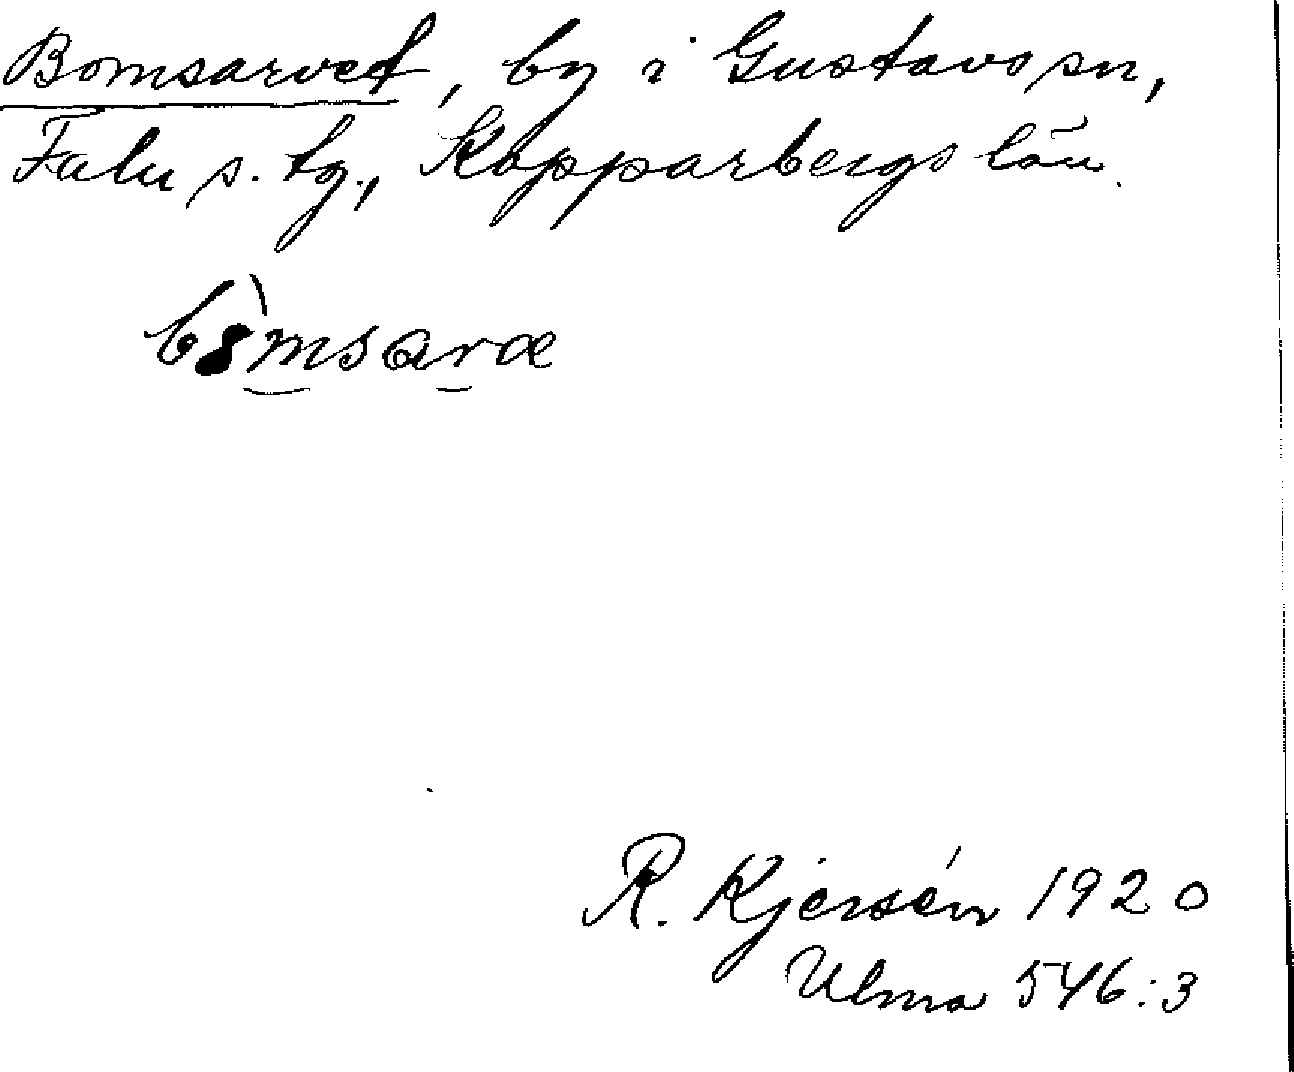 Bomsarvet, by i Gustavs sn,
Falu s. tg., Kopparbergs län.
R. Kjersén 1920
Ulma 546:3